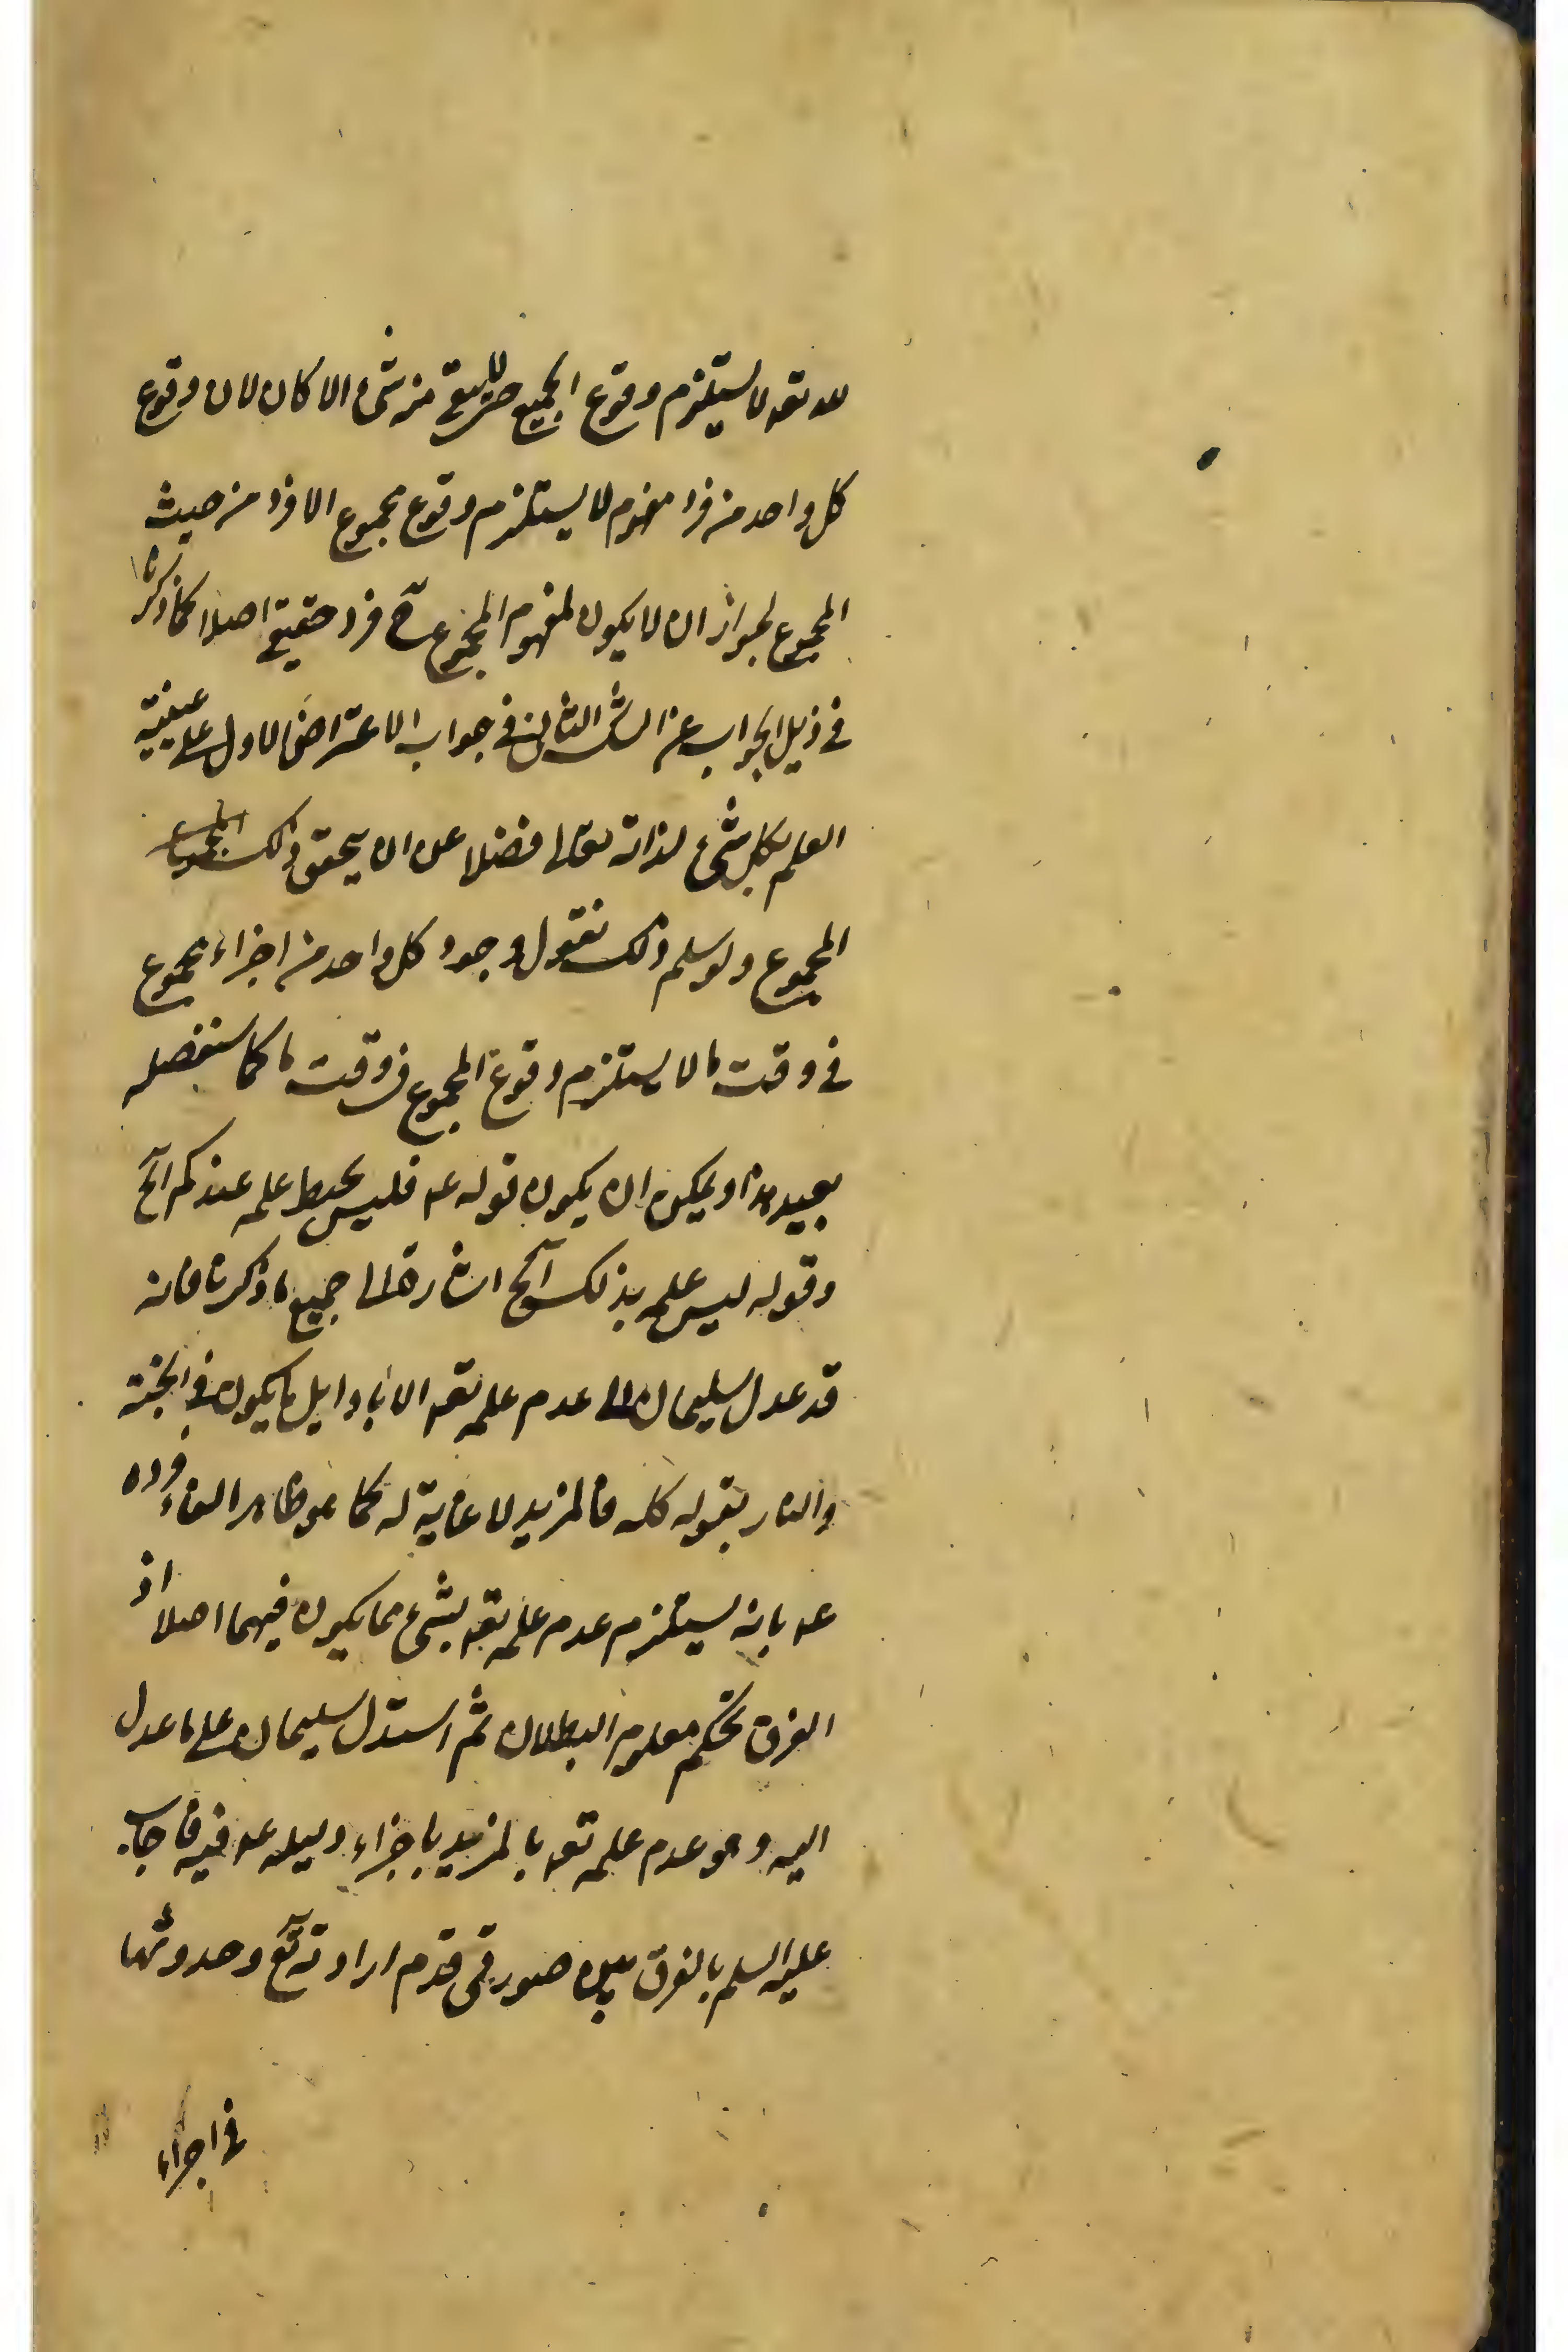 له تعه لا يستلزم وقوع الجميع حتى لا يبقى من شئ الا كان لان وقوع
كل واحد من فرد مفهوم لا يستلزم وقوع مجموع الافراد من حيث
المجموع لجواز ان لا يكون لمفهوم المجموع ح فرد حقيقى اصلا كما ذكرنا
فى ذيل الجواب عن الشق الثانى فى جواب الاعتراض الاول على عينية
العلم بكل شئ لذاته تعالى فضلا عن ان يتحقق ذلك
المجموع ولو سلم ذلك نقول وجود كل واحد من اجزاء مجموع
فى وقت ما لا يستلزم وقوع المجموع فى وقت ما كما سنفصله
بعيد هذا ويمكن ان يكون قوله عه فليس يحيط علمه عندكم آلخ
وقوله ليس علمه بذلك آلخ اشارة الى جميع ما ذكرنا فانه
قد عدل سليمان الى عدم علمه تعه الا باوايل ما يكون فى الجنة
والنار بقوله كله فالمزيد لا غاية له كما هو ظاهر الفاء ورده
عه بانه يستلزم عدم علمه تعه بشئ مما يكون فيهما اصلا اذ
الفرق تحكم معلوم البطلان ثم استدل سليمان على ما عدل
اليه وهو عدم علمه تعه بالمزيد باجزاء دليله عه فيه فاجاب
عليه السلم بالفرق بين صورتى قدم ارادته تع وحدوثها
فى اجزاء